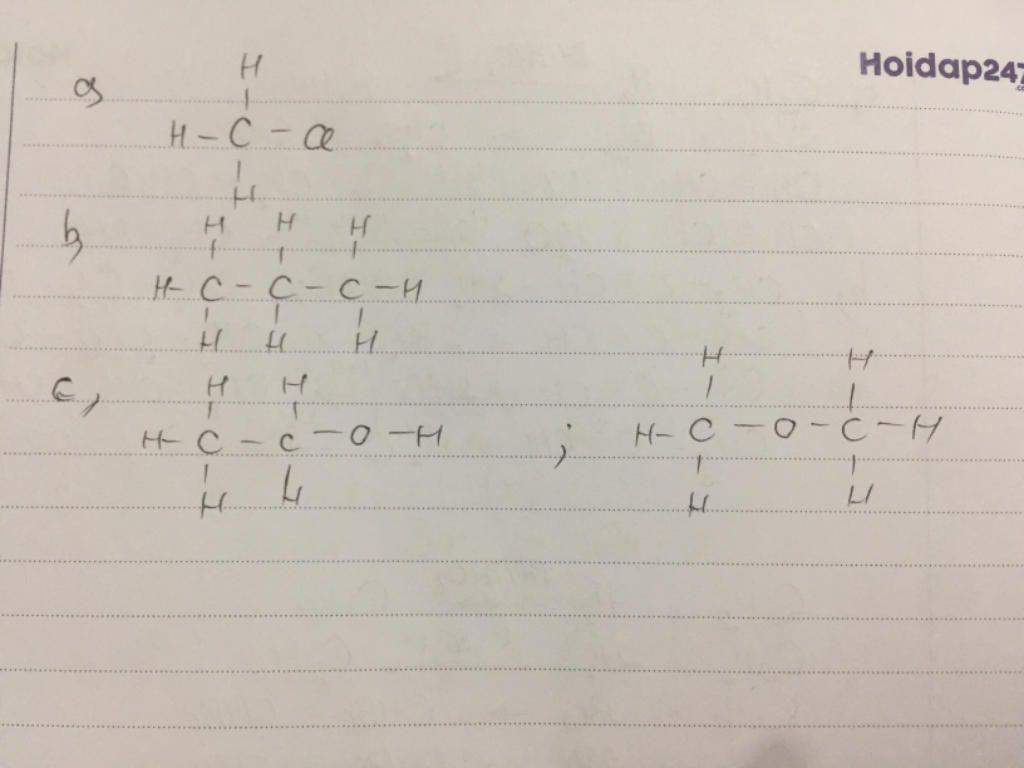 Hoidap247
.co
a,
H
H - C - Cl
H
b,
H H H
H - C - C - C - H
H H H
c,
H H
H - C - C - O - H ;
H H
H H
H - C - O - C - H
H H